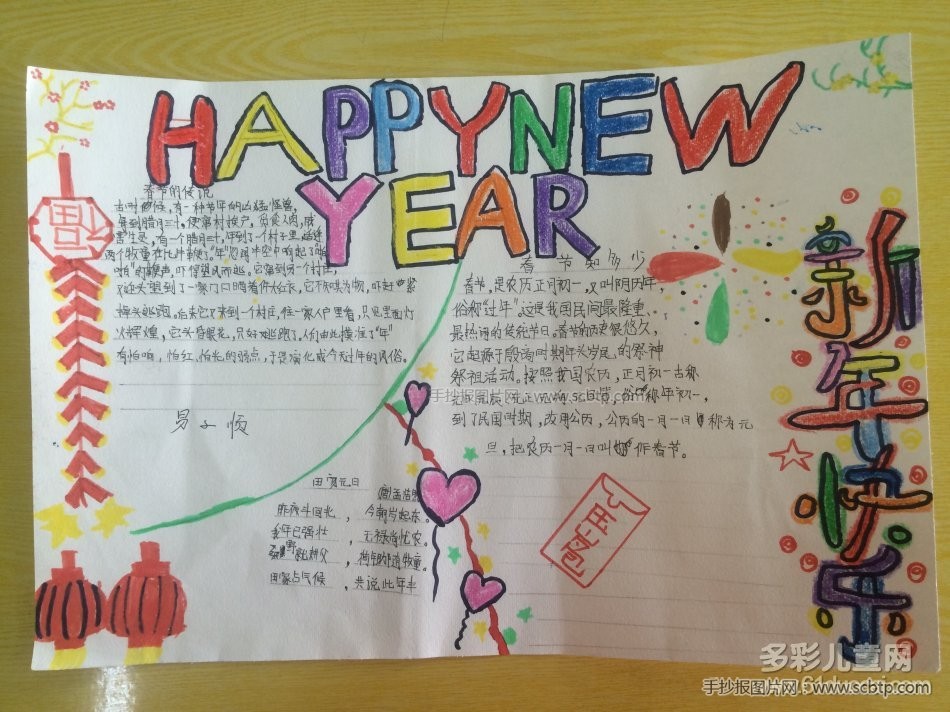 HAPPY NEW
YEAR
福
春节的传说
古时候,有一种
每到腊月三十,便
害生灵,有一个腊月三十,年到了一个村子里,
两个牧童在比牛鞭子,"年"忽闻半空中响起了啪
啪的鞭声,吓得望风而逃。它窜到另一个村庄,
又迎头望到了一家门口晒着件大红衣,它不知其为何,吓
掉头逃跑。后来它又来到一个村庄,往一家人户里看,只见里面灯
火辉煌,它头昏眼花,只好逃跑了。人们由此摸准了"年"
有怕响,怕红,怕光的弱点,于是演化成今天过年的风俗。
易子
春节知多少
春节,是农历正月初一,又叫阴历年,
俗称"过年",这是我国民间最隆重、
最热闹的传统节日。春节的历史很悠久,
它起源于殷商时期年头岁尾的祭神
祭祖活动。按照我国农历,正月初一古称
俗称年初一,
到了民国时期,改用公历,公历的一月一日称为元
旦,把农历一月一日叫作春节。
田家元日
孟浩然
昨夜斗回北,今朝岁起东。
我年已强壮,无禄尚忧农。
耕父,荷锄随牧童。
田家占气候,共说此年丰
新年快乐
手抄报图片网:www.scbtp.com
多彩儿童网
手抄报图片网:www.scbtp.com